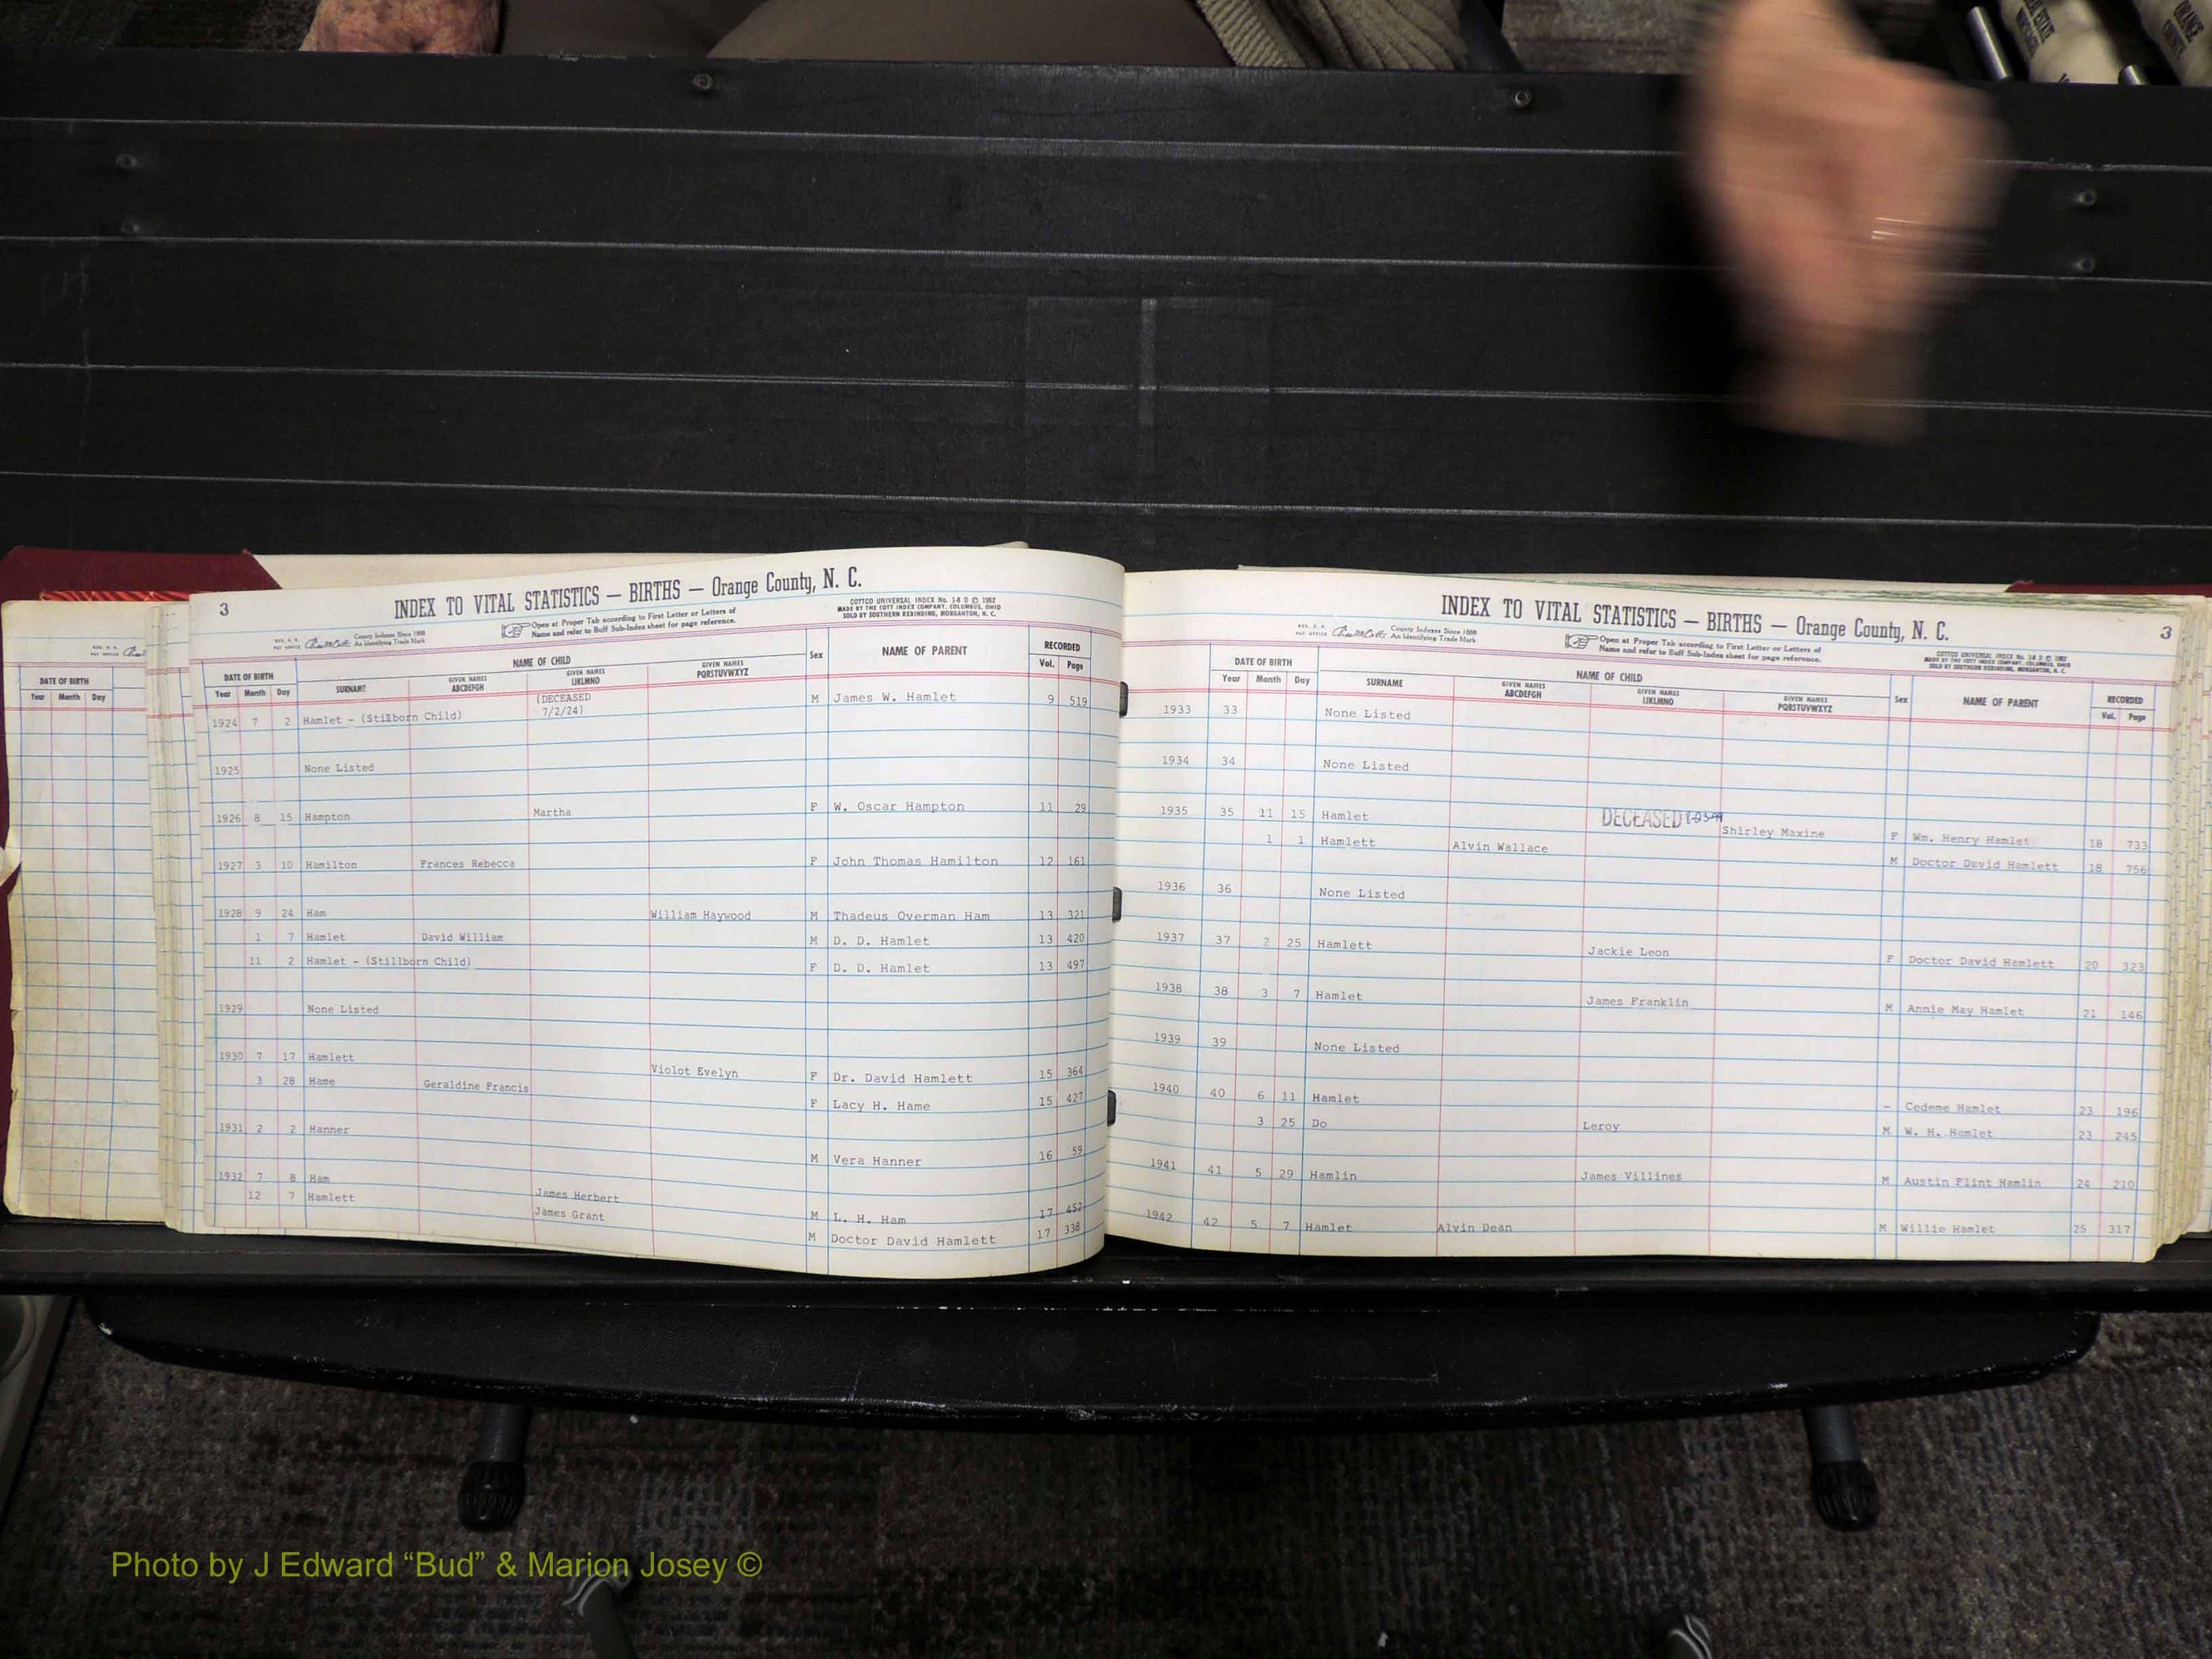 3
INDEX TO VITAL STATISTICS — BIRTHS — Orange County, N. C.
COTTCO UNIVERSAL INDEX No. 1-8 D © 1962
MADE BY THE COTT INDEX COMPANY, COLUMBUS, OHIO
SOLD BY SOUTHERN REBINDING, MORGANTON, N. C.
County Indexes Since 1888
An Identifying Trade Mark
Open at Proper Tab according to First Letter or Letters of
Name and refer to Buff Sub-Index sheet for page reference.
DATE OF BIRTH NAME OF CHILD Sex NAME OF PARENT RECORDED
Year Month Day SURNAME GIVEN NAMES ABCDEFGH GIVEN NAMES IJKLMNO GIVEN NAMES PQRSTUVWXYZ Vol. Page
1924 7 2 Hamlet - (Stillborn Child) (DECEASED 7/2/24) M James W. Hamlet 9 519
1925 None Listed
1926 8 15 Hampton Martha F W. Oscar Hampton 11 29
1927 3 10 Hamilton Frances Rebecca F John Thomas Hamilton 12 161
1928 9 24 Ham William Haywood M Thadeus Overman Ham 13 321
1 7 Hamlet David William M D. D. Hamlet 13 420
11 2 Hamlet - (Stillborn Child) F D. D. Hamlet 13 497
1929 None Listed
1930 7 17 Hamlett Violot Evelyn F Dr. David Hamlett 15 364
3 28 Hame Geraldine Francis F Lacy H. Hame 15 427
1931 2 2 Hanner M Vera Hanner 16 59
1932 7 8 Ham James Herbert M L. H. Ham 17 452
12 7 Hamlett James Grant M Doctor David Hamlett 17 338
DATE OF BIRTH
Year Month Day
INDEX TO VITAL STATISTICS — BIRTHS — Orange County, N. C.
3
County Indexes Since 1888
An Identifying Trade Mark
Open at Proper Tab according to First Letter or Letters of
Name and refer to Buff Sub-Index sheet for page reference.
COTTCO UNIVERSAL INDEX No. 1-8 D © 1962
MADE BY THE COTT INDEX COMPANY, COLUMBUS, OHIO
SOLD BY SOUTHERN REBINDING, MORGANTON, N. C.
DATE OF BIRTH NAME OF CHILD Sex NAME OF PARENT RECORDED
Year Month Day SURNAME GIVEN NAMES ABCDEFGH GIVEN NAMES IJKLMNO GIVEN NAMES PQRSTUVWXYZ Vol. Page
1933 33 None Listed
1934 34 None Listed
1935 35 11 15 Hamlet DECEASED Shirley Maxine F Wm. Henry Hamlet 18 733
1 1 Hamlett Alvin Wallace M Doctor David Hamlett 18 756
1936 36 None Listed
1937 37 2 25 Hamlett Jackie Leon F Doctor David Hamlett 20 323
1938 38 3 7 Hamlet James Franklin M Annie May Hamlet 21 146
1939 39 None Listed
1940 40 6 11 Hamlet - Cedeme Hamlet 23 196
3 25 Do Leroy M W. H. Hamlet 23 245
1941 41 5 29 Hamlin James Villines M Austin Flint Hamlin 24 210
1942 42 5 7 Hamlet Alvin Dean M Willie Hamlet 25 317
Photo by J Edward “Bud” & Marion Josey ©